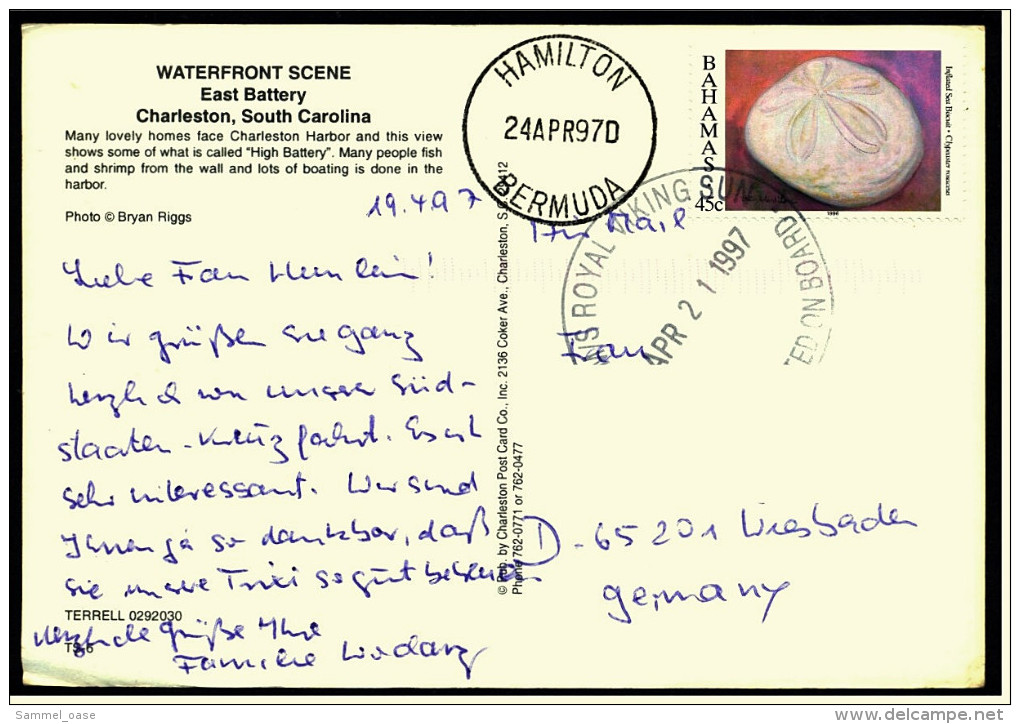 WATERFRONT SCENE
East Battery
Charleston, South Carolina
Many lovely homes face Charleston Harbor and this view
shows some of what is called "High Battery". Many people fish
and shrimp from the wall and lots of boating is done in the
harbor.
Photo © Bryan Riggs
19.4.97
Liebe Frau
Wir grüßen Sie ganz
herzlich von unserer Süd-
staaten-Kreuzfahrt. Es ist
sehr interessant. Wir sind
Ihnen ja so dankbar, daß
Sie unsere Trixi so gut
Herzliche Grüße Ihre
Familie
TERRELL 0292030
© Pub. by Charleston Post Card Co., Inc. 2136 Coker Ave., Charleston, S.C.
Phone 762-0771 or 762-0477
HAMILTON
24APR97D
BERMUDA
BAHAMAS
45c
Inflated Sea Biscuit • Clypeaster rosaceus
1996
ROYAL VIKING SUN
APR 21 1997
ON BOARD
Air Mail
Frau
D-65201 Wiesbaden
Germany
Sammel_oase
delcampe.net